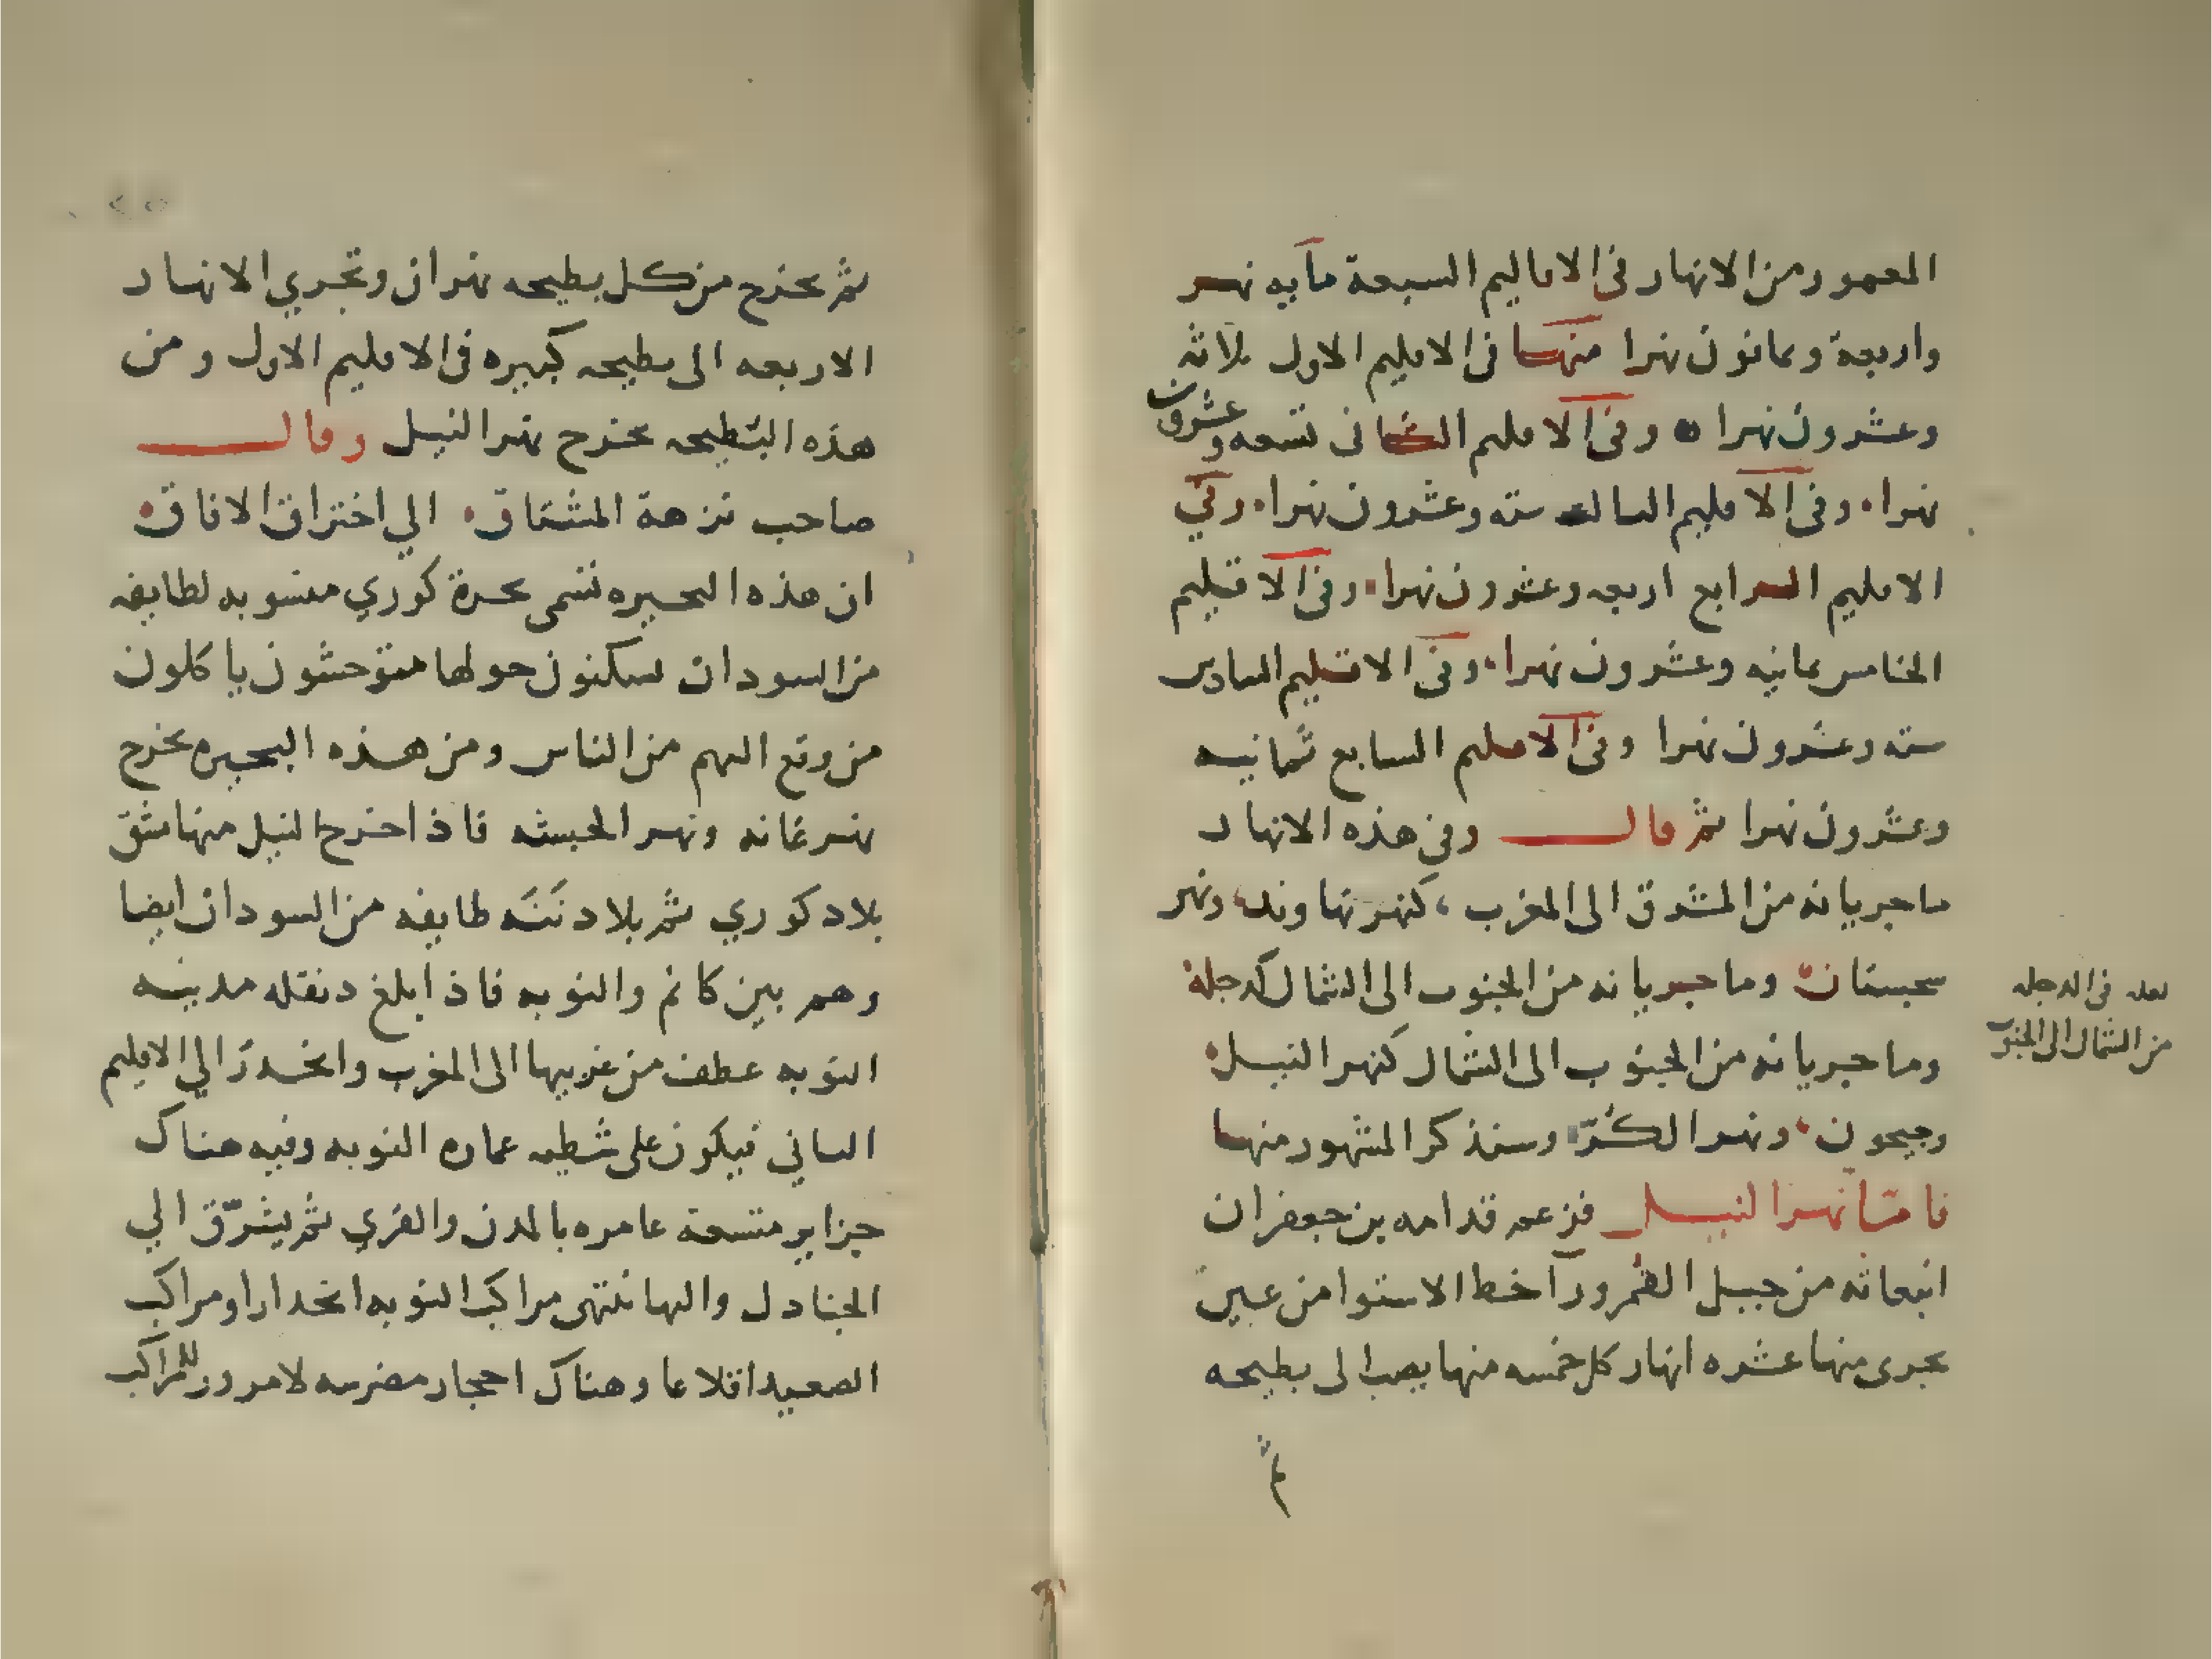 المعمور ومن الانهار فى الاقاليم السبعة مآيه نهر
واربعة وثمانون نهرا منها فى الاقليم الاول ثلاثه
وعشرون نهرا وفى الاقليم الثانى تسعه وعشرون
نهرا وفى الاقليم الثالث سته وعشرون نهرا وفي
الاقليم الرابع اربعه وعشرون نهرا وفى الاقليم
الخامس ثمانيه وعشرون نهرا وفى الاقليم السادس
سته وعشرون نهرا وفى الاقليم السابع ثمانيه
وعشرون نهرا ثم قال وفى هذه الانهار
ما جريانه من المشرق الى المغرب كنهر نهاوند ونهر
سجستان وما جريانه من الجنوب الى الشمال كدجلة
لعله فى الدجله
من الشمال الى الجنوب
وما جريانه من الجنوب الى الشمال كنهر النيل
وجيحون ونهر الكُرّ وسنذكر المشهور منها
فامّا نهر النيل فزعم قدامه بن جعفر ان
انبعاثه من جبل القُمر ورآ خط الاستوا من عين
تجرى منها عشره انهار كل خمسه منها يصب الى بطيحه
ثم
ثم يخرج من كل بطيحه نهران وتجري الانهار
الاربعه الى بطيحه كبيره فى الاقليم الاول ومن
هذه البطيحه يخرج نهر النيل وقال
صاحب نزهة المشتاق الي اختراق الافاق
ان هذه البحيره تسمى بحيرة كوري منسوبه لطايفه
من السودان يسكنون حولها متوحشون ياكلون
من وقع اليهم من الناس ومن هذه البحيره يخرج
نهر غانه ونهر الحبشه فاذا خرج النيل منها شق
بلاد كوري ثم بلاد نَنَه طايفه من السودان ايضا
وهم بين كانم والنوبه فاذا بلغ دنقله مدينه
النوبه عطف من غربيها الى المغرب وانحدر الي الاقليم
الثاني فيكون على شطيه عماره النوبه وفيه هناك
جزاير متسعة عامره بالمدن والقري ثم يشرّق الي
الجنادل واليها تنتهى مراكب النوبه انحدارا ومراكب
الصعيد اقلاعا وهناك احجار مضرسه لا مرور للمراكب